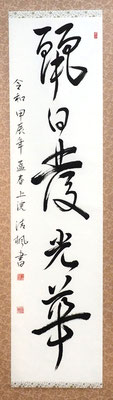 麗日發光華
令和甲辰年孟春上浣 浩楓書